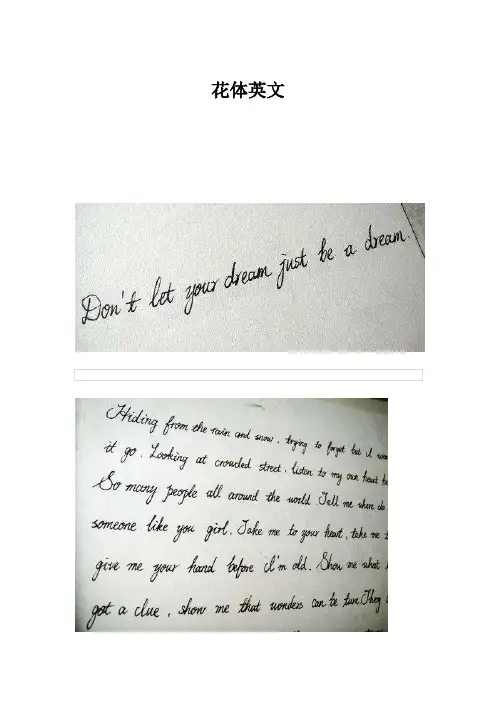 花体英文
Don't let your dream just be a dream.
Hiding from the rain and snow, trying to forget but I
it go. Looking at crowded street, listen to my own heart
So many people all around the world. Tell me where do
someone like you girl. Take me to your heart, take me
give me your hand before I'm old. Show me what
got a clue, show me that wonders can be true. They